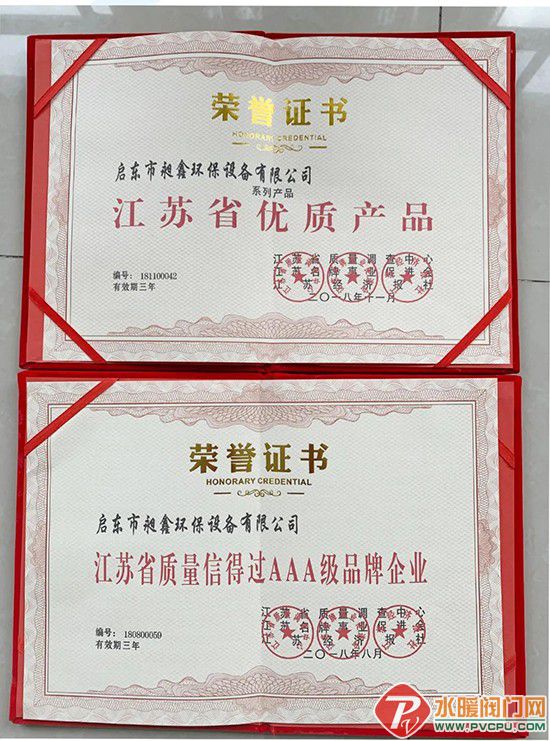 荣誉证书
HONORARY CREDENTIAL
启东市昶鑫环保设备有限公司
系列产品
江苏省优质产品
江苏省质量调查中心
编号：181100042
江苏名牌事业促进会
有效期三年
江苏经济报社
二〇一八年十一月
荣誉证书
HONORARY CREDENTIAL
启东市昶鑫环保设备有限公司
江苏省质量信得过AAA级品牌企业
江苏省质量调查中心
江苏名牌事业促进会
编号：180800059
江苏经济报社
有效期三年
二〇一八年八月
水暖阀门网
WWW.PVCPU.COM